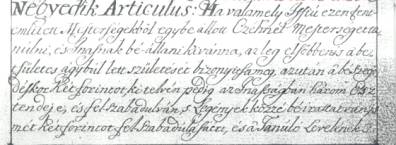 Negyedik Articulus: Ha valamely Iffiú ezen fent
emlétett Mesterségekből egybe állott Czéhnél Mesterséget ta
nulni, és Inasnak bé-állani kivánna, az leg elsőbben is a bé
tsületes ágybúl lett születését bizonyittsa meg, azután a bé szegő
déskor Két forintot ki tévén pedig az Inasságban három Esz
tendeje, és fel szabadulván, s Legények közzé bé irattatván is
mét Két forintot fel szabadulásátt, és a Tanuló Levelének